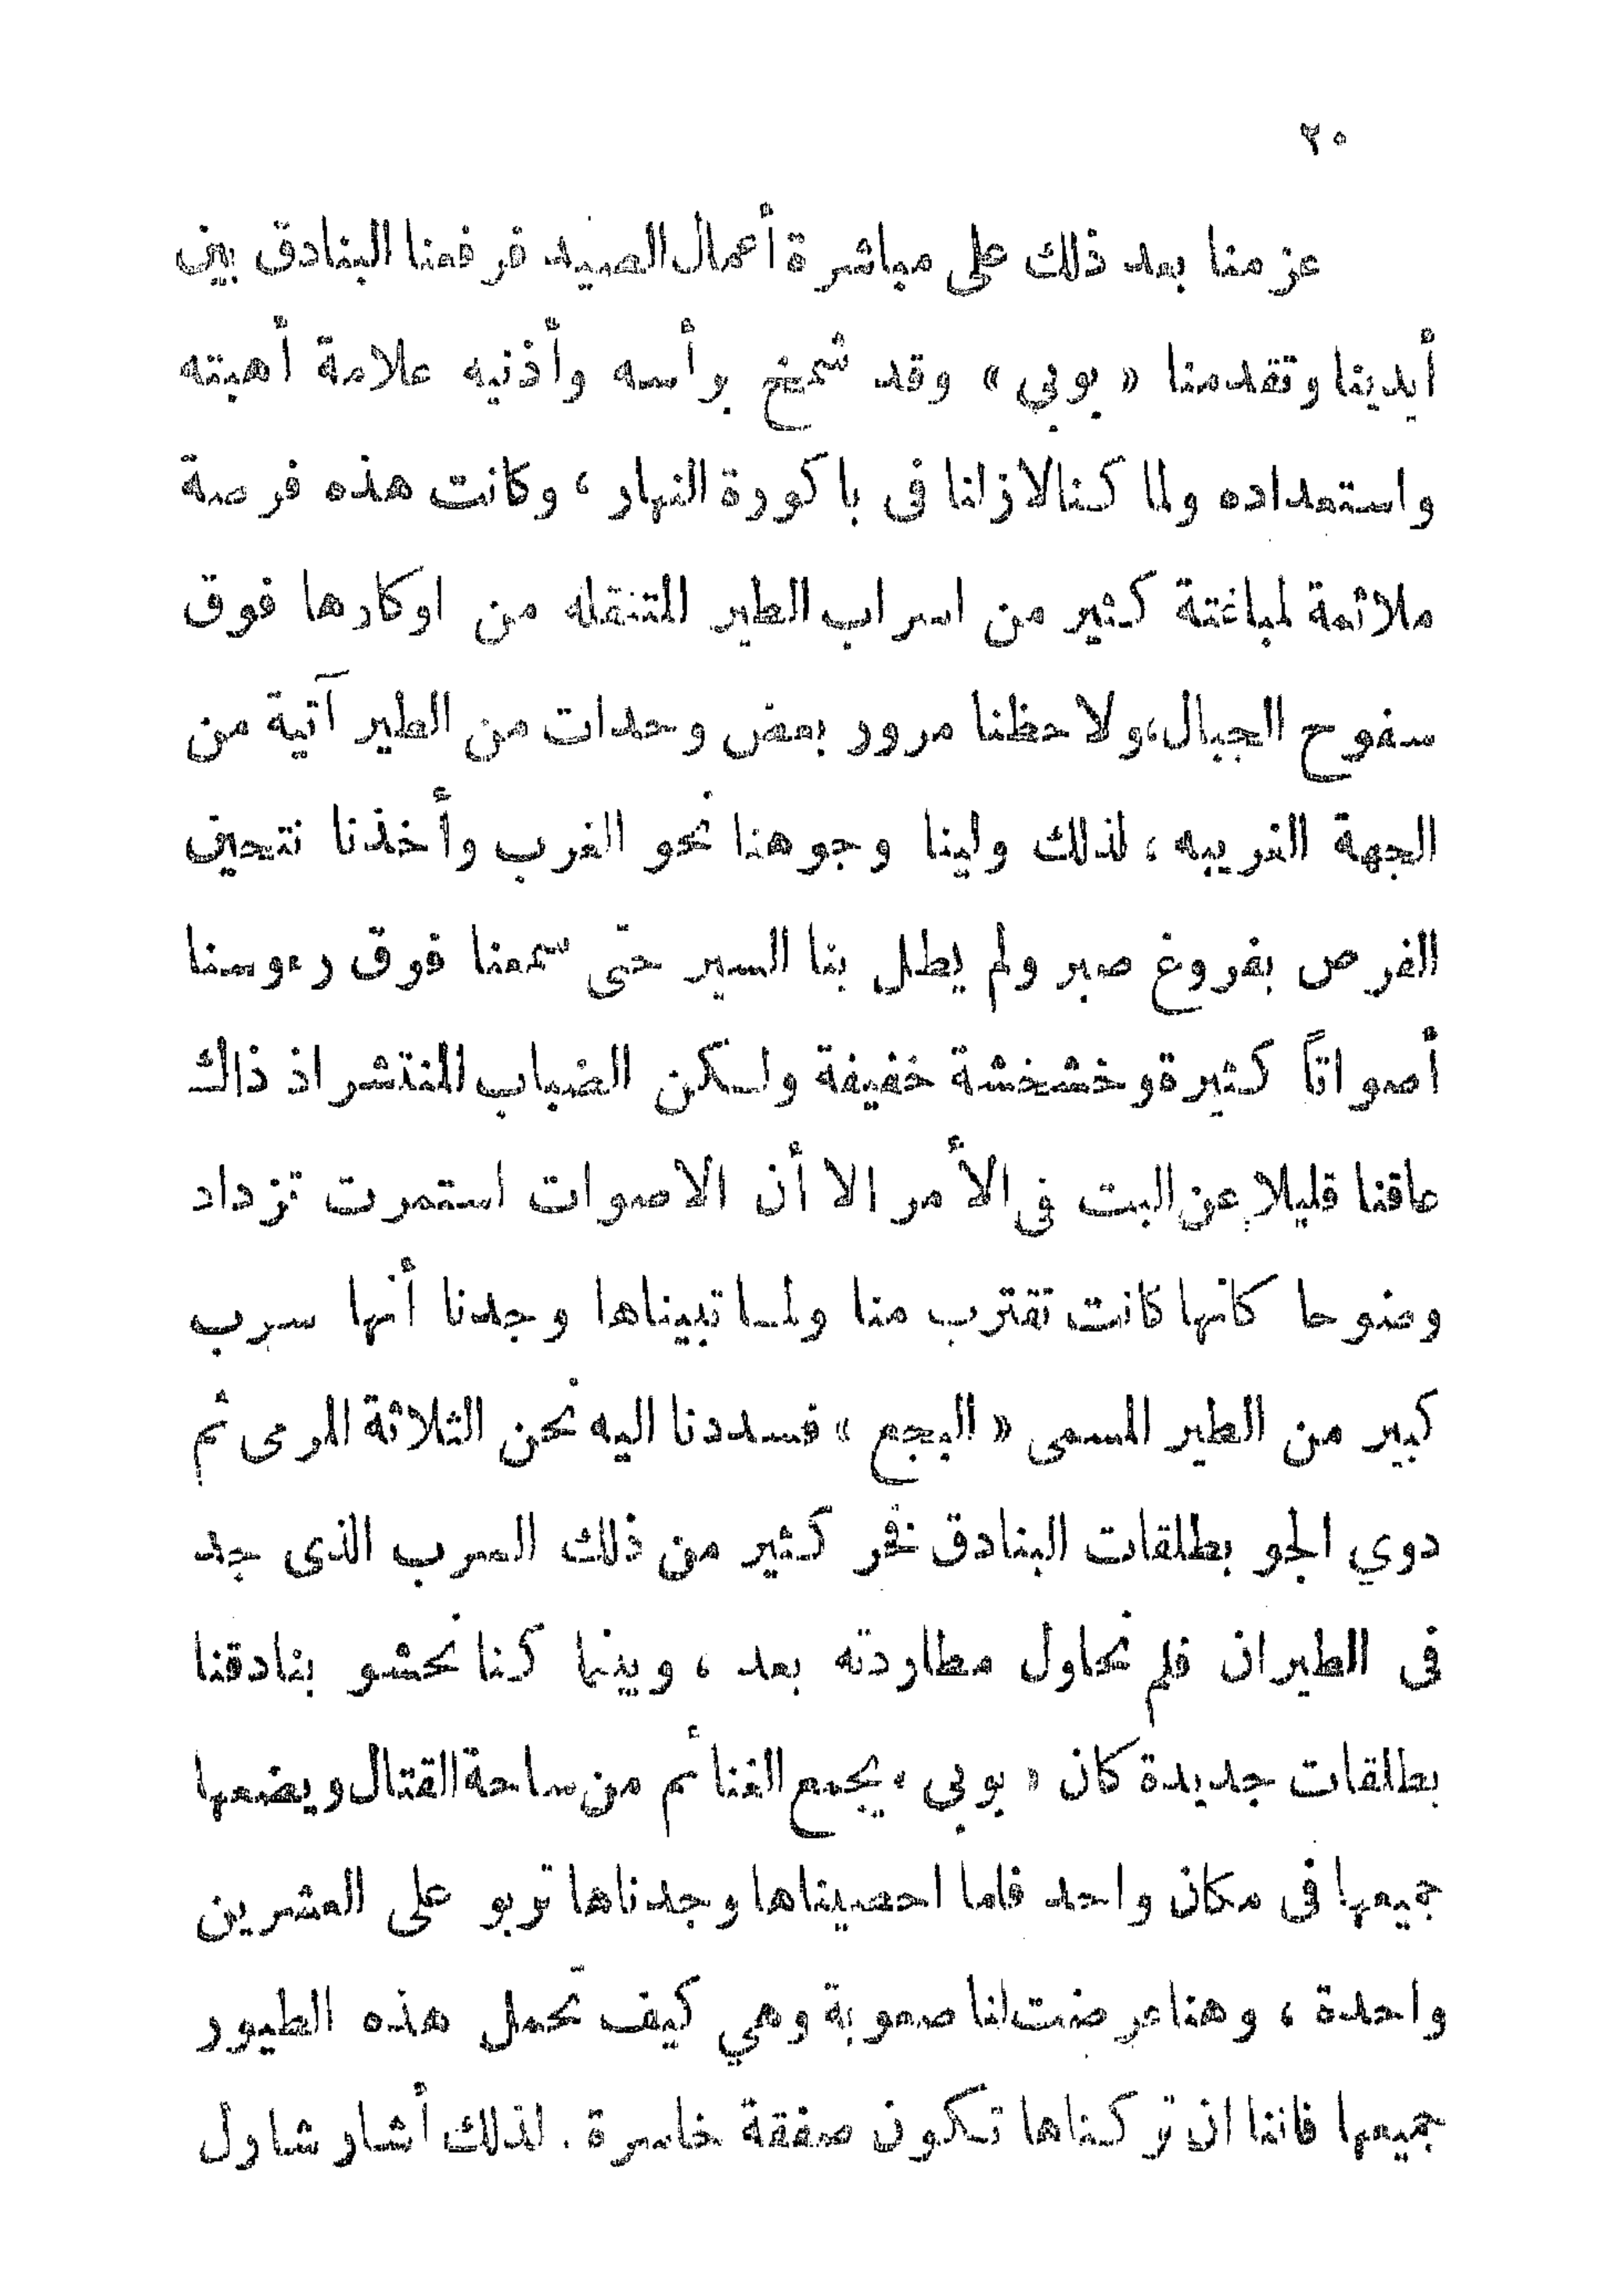 ٢٠
عزمنا بعد ذلك على مباشرة أعمال الصيد فرفعنا البنادق بين
أيدينا وتقدمنا « بوبي » وقد شمخ برأسه وأذنيه علامة أهبته
واستعداده ولما كنا لازلنا فى باكورة النهار ، وكانت هذه فرصة
ملائمة لمباغتة كثير من اسراب الطير المتنقله من اوكارها فوق
سفوح الجبال، ولاحظنا مرور بعض وحدات من الطير آتية من
الجهة الغربيه ، لذلك ولينا وجوهنا نحو الغرب وأخذنا نتحين
الفرص بفروغ صبر ولم يطل بنا السير حتى سمعنا فوق رءوسنا
أصواتاً كثيرة وخشخشة خفيفة ولكن الضباب المنتشر اذ ذاك
عاقنا قليلا عن البت فى الأمر الا أن الاصوات استمرت تزداد
وضوحا كانها كانت تقترب منا ولما تبيناها وجدنا أنها سرب
كبير من الطير المسمى « البجع » فسددنا اليه نحن الثلاثة المرمى ثم
دوي الجو بطلقات البنادق نخر كثير من ذلك السرب الذى جد
فى الطيران فلم نحاول مطاردته بعد ، وبينما كنا نحشو بنادقنا
بطلقات جديدة كان « بوبي » يجمع الغنائم من ساحة القتال ويضعها
جميعها فى مكان واحد فاما احصيناها وجدناها تربو على العشرين
واحدة ، وهنا عرضت لنا صعوبة وهي كيف نحمل هذه الطيور
جميعها فاننا ان تركناها تكون صفقة خاسرة . لذلك أشار شاول